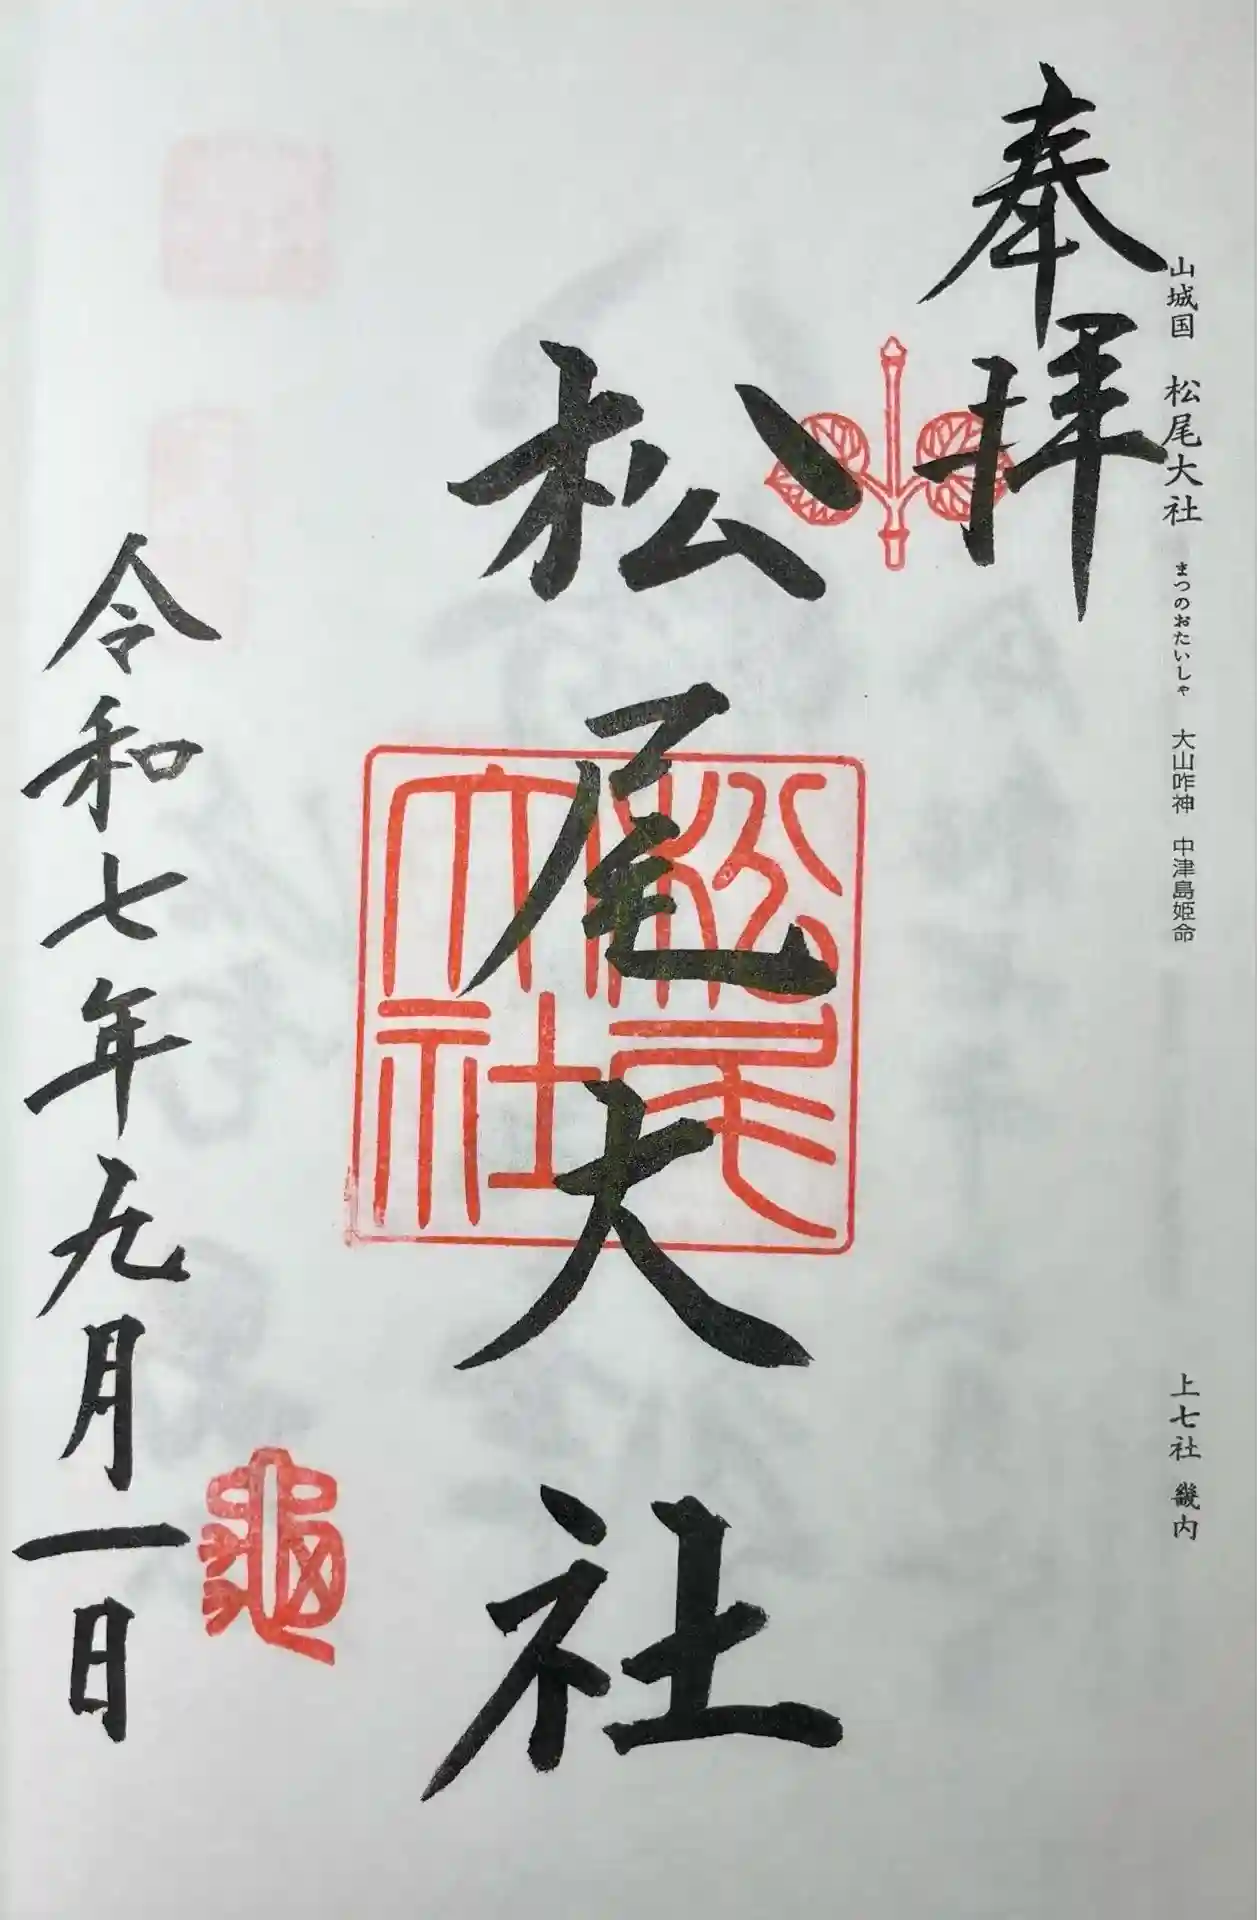 山城国 松尾大社 まつのおたいしゃ 大山咋神 中津島姫命 上七社 畿内
奉拝
松尾大社
松尾大社
令和七年九月一日
亀